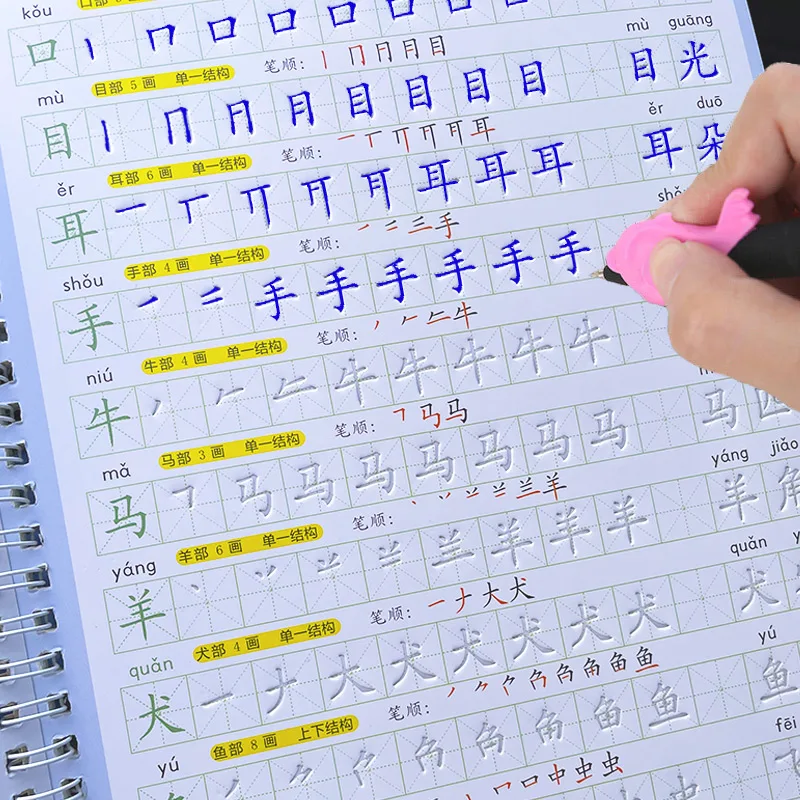 kǒu
口 丨 冂 口 口 口 口 口
mù 目部 5 画 单一结构 笔顺: 丨 冂 月 月 目 mù guāng
目 丨 冂 月 月 目 目 目 目 目 光
ěr 耳部 6 画 单一结构 笔顺: 一 丅 丌 耳 ěr duō
耳 一 丅 丌 耳 耳 耳 耳 朵
shǒu 手部 4 画 单一结构 笔顺: 一 二 三 手
手 一 二 手 手 手 手 手 手
niú 牛部 4 画 单一结构 笔顺: 丿 𠂉 牛
牛 丿 𠂉 牛 牛 牛 牛 牛
mǎ 马部 3 画 单一结构 笔顺: ㇕ 马 马
马 ㇕ 马 马 马 马 马 马 马 马 匹
yáng 羊部 6 画 单一结构 笔顺: 丶 丷 羊 yáng jiǎo
羊 丶 丷 羊 羊 羊 羊 羊 角
quǎn 犬部 4 画 单一结构 笔顺: 一 ナ 大 犬 quǎn
犬 一 ナ 大 犬 犬 犬 犬 犬 犬
yú 鱼部 8 画 上下结构 笔顺: 丿 𠂊 鱼 yú
鱼 鱼
口 中 虫 虫 fēi
虫